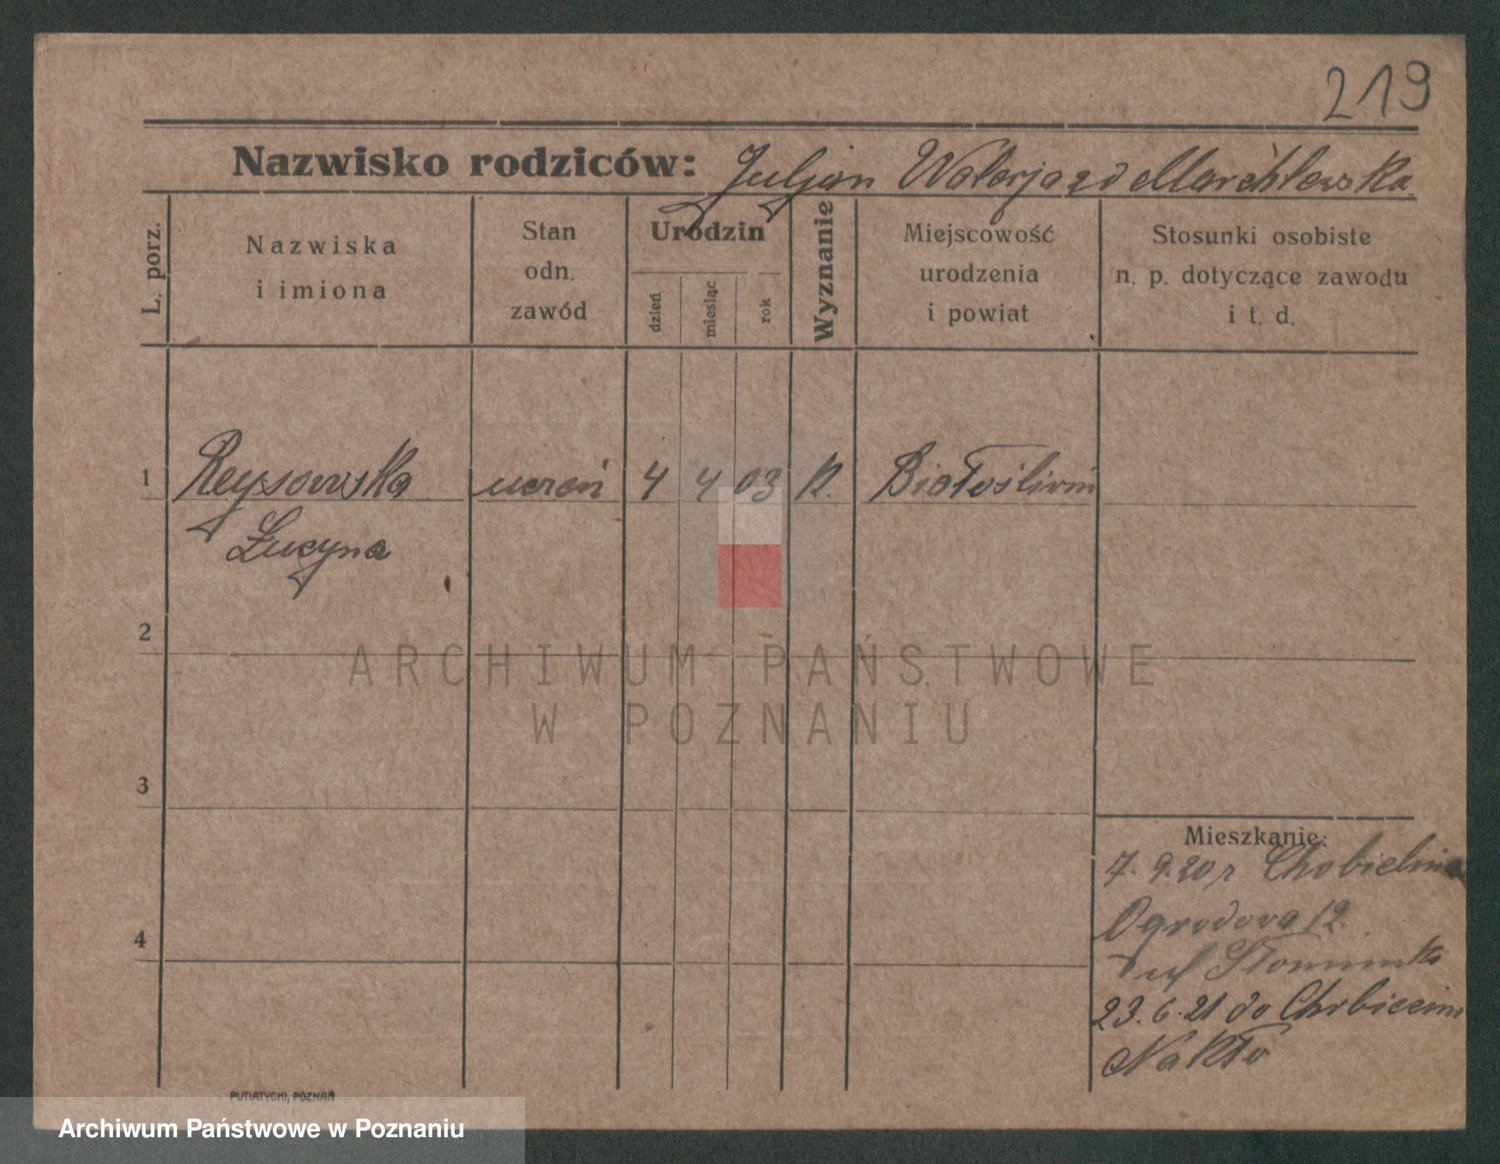 219
Nazwisko rodziców: Juljan Walerja zd Marchlewska
L. porz.
Nazwiska
i imiona
Stan
odn.
zawód
Urodzin
dzień
miesiąc
rok
Wyznanie
Miejscowość
urodzenia
i powiat
Stosunki osobiste
n. p. dotyczące zawodu
i t. d.
1 Reysowska uczeń 4 4 03 k. Białośliwin
Łucyna
2
ARCHIWUM PAŃSTWOWE
W POZNANIU
3
Mieszkanie:
7. 9. 20 r Chobielina
Ogrodowa 12.
4
23. 6. 21 do
Nakło
PUTIATYCKI, POZNAŃ
Archiwum Państwowe w Poznaniu